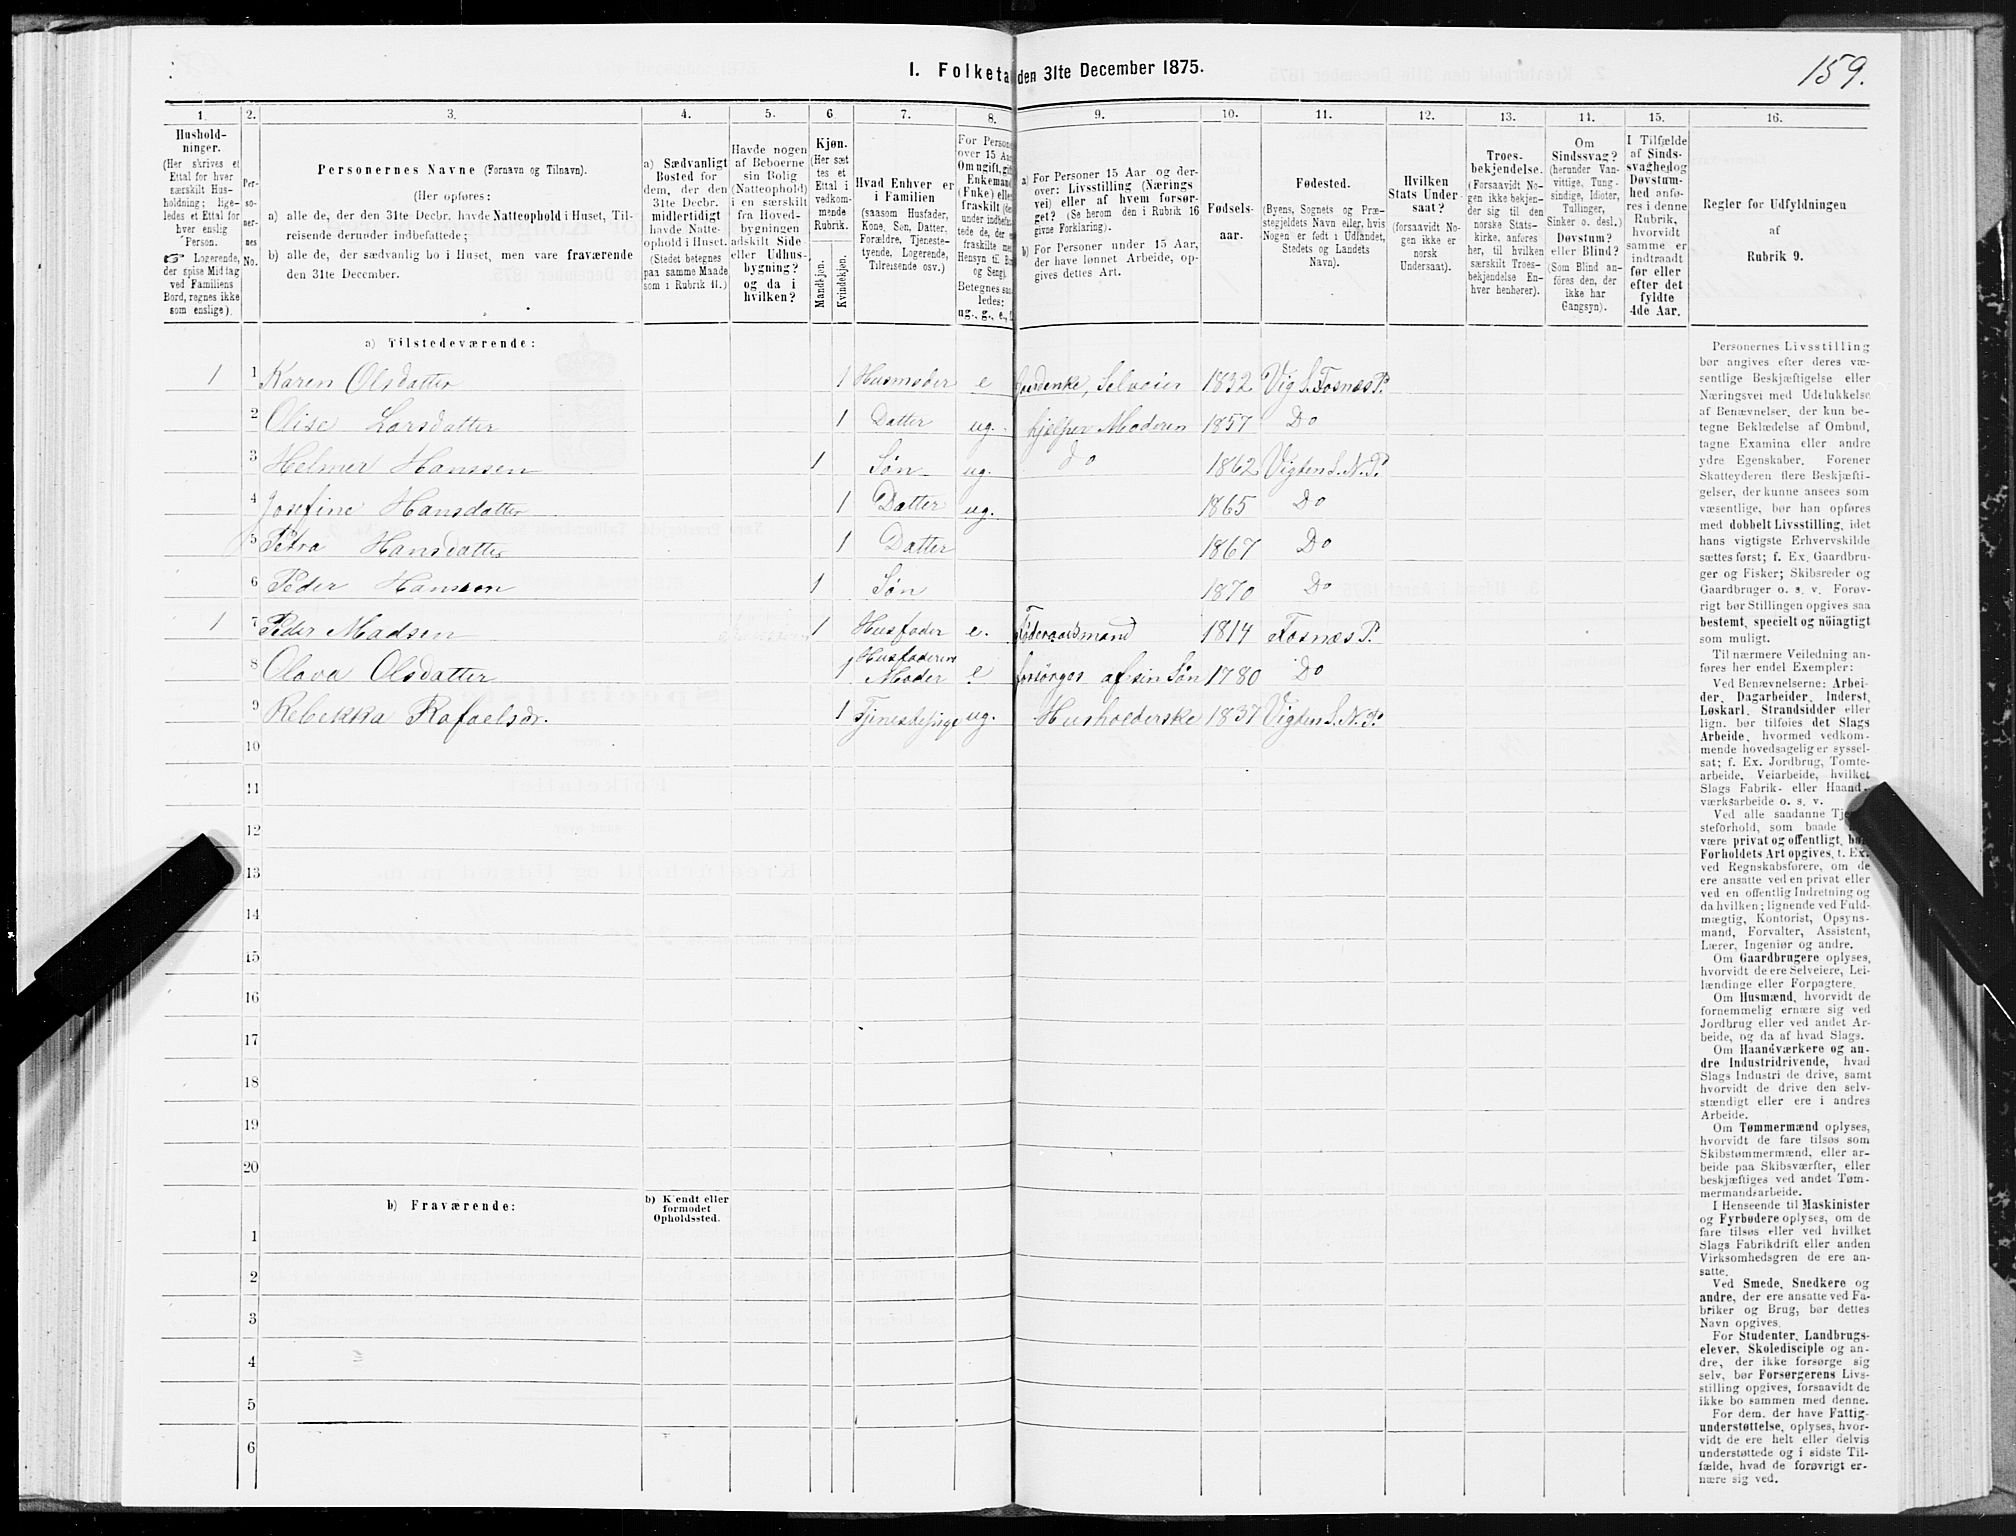 I. Folketa den 31te December 1875.
159.
1. 2. 3. 4. 5. 6. 7. 8. 9. 10. 11. 12. 13. 14. 15. 16.
Hushold-
ninger.
(Her skrives et
Ettal for hver
særskilt Hus-
holdning; lige-
ledes et Ettal for
hver enslig
Person.
☞ Logerende,
der spise Middag
ved Familiens
Bord, regnes ikke
som enslige).
Per-
so-
ner-
nes
No.
Personernes Navne (Fornavn og Tilnavn).
(Her opføres:
a) alle de, der den 31te Decbr. havde Natteophold i Huset, Til-
reisende derunder indbefattede;
b) alle de, der sædvanlig bo i Huset, men vare fraværende
den 31te December.
a) Sædvanligt
Bosted for
dem, der den
31te Decbr.
midlertidigt
havde Natte-
ophold i Huset.
(Stedet betegnes
paa samme Maade
som i Rubrik 11.)
Havde nogen
af Beboerne
sin Bolig
(Natteophold)
i en særskilt
fra Hoved-
bygningen
adskilt Side-
eller Udhus-
bygning?
og da i
hvilken?
Kjøn.
(Her sæt-
tes et
Ettal i
vedkom-
mende
Rubrik.
Mandkjøn.
Kvindekjøn.
Hvad Enhver er
i Familien
(saasom Husfader,
Kone, Søn, Datter,
Forældre, Tjeneste-
tyende, Logerende,
Tilreisende osv.)
For Person
over 15 Aa
Om ugift, gif
Enkeman
(Enke) elle
fraskilt (de
under indbef
tede de, der e
fraskilte me
Hensyn til B
og Seng).
Betegnes saa
ledes:
ug., g., e.,
a) For Personer 15 Aar og der-
over: Livsstilling (Nærings
vei) eller af hvem forsør-
get? (Se herom den i Rubrik 16
givne Forklaring).
b) For Personer under 15 Aar,
der have lønnet Arbeide, op-
gives dettes Art.
Fødsels-
aar.
Fødested.
(Byens, Sognets og Præ-
stegjeldets Navn eller, hvis
Nogen er født i Udlandet,
Stedets og Landets
Navn).
Hvilken
Stats Under-
saat?
(forsaavidt No-
gen ikke er
norsk
Undersaat).
Troes-
bekjendelse.
(Forsaavidt No-
gen ikke bekjen-
der sig til den
norske Stats-
kirke, anføres
her, til hvilken
særskilt Troes-
bekjendelse En-
hver henhører).
Om
Sindssvag?
(herunder Van-
vittige, Tung-
sindige, Idioter,
Tullinger,
Sinker o. desl.)
Døvstum?
eller Blind?
(Som Blind an-
føres den, der
ikke har
Gangsyn).
I Tilfælde
af Sinds-
svaghed og
Døvstum-
hed anfø-
res i denne
Rubrik,
hvorvidt
samme er
indtraadt
før eller
efter det
fyldte
4de Aar.
Regler for Udfyldningen
af
Rubrik 9.
a) Tilstedeværende:
1 1 Karen Olsdatter 1 Husmoder e Gaardenke, Selveier 1832 Vig S. Fosnæs P.
2 Olise Larsdatter 1 Datter ug. hjelper Moderen 1857 Do
3 Helmer Hanssen 1 Søn ug. do 1862 Vigten S. N. P.
4 Josefine Hansdatter 1 Datter ug. 1865 Do
5 Petra Hansdatter 1 Datter 1867 Do
6 Peder Hanssen 1 Søn 1870 Do
1 7 Peder Madsen 1 Husfader e. Föderaadsmand 1814 Fosnæs P.
8 Olava Olsdatter 1 Husfaderens
Moder e forsörges af sin Søn 1780 Do
9 Rebekka Rafaelsdr. 1 Tjenestepige ug. Husholderske 1837 Vigten S. N. P.
10
11
12
13
14
15
16
17
18
19
20
b) Fraværende:
b) Kjendt eller
formodet
Opholdssted.
1
2
3
4
5
6
Personernes Livsstilling
bør angives efter deres væ-
sentlige Beskjæftigelse eller
Næringsvei med Udelukkelse
af Benævnelser, der kun be-
tegne Beklædelse af Ombud,
tagne Examina eller andre
ydre Egenskaber. Forener
Skatteyderen flere Beskjæfti-
gelser, der kunne ansees som
væsentlige, bør han opføres
med dobbelt Livsstilling, idet
hans vigtigste Erhvervskilde
sættes først; f. Ex. Gaardbru-
ger og Fisker; Skibsreder og
Gaardbruger o. s. v. Forøv-
rigt bør Stillingen opgives saa
bestemt, specielt og nöiagtigt
som muligt.
Til nærmere Veiledning an-
føres her endel Exempler:
Ved Benævnelserne: Arbei-
der, Dagarbeider, Inderst,
Løskarl, Strandsidder eller
lign. bør tilføies det Slags
Arbeide, hvormed vedkom-
mende hovedsagelig er syssel-
sat; f. Ex. Jordbrug, Tomte-
arbeide, Veiarbeide, hvilket
Slags Fabrik- eller Haand-
værksarbeide o. s. v.
Ved alle saadanne Tje
steforhold, som baade
være privat og offentligt, bør
Forholdets Art opgives, t. Ex.
ved Regnskabsførere, om de
ere ansatte ved en privat eller
ved en offentlig Indretning og
da hvilken; lignende ved Fuld-
mægtig, Kontorist, Opsyns-
mand, Forvalter, Assistent,
Lærer, Ingeniør og andre.
Om Gaardbrugere oplyses,
hvorvidt de ere Selveiere, Lei-
lændinge eller Forpagtere.
Om Husmænd, hvorvidt de
fornemmelig ernære sig ved
Jordbrug eller ved andet Ar-
beide, og da af hvad Slags.
Om Haandværkere og an-
dre Industridrivende, hvad
Slags Industri de drive, samt
hvorvidt de drive den selv-
stændigt eller ere i andres
Arbeide.
Om Tømmermænd oplyses,
hvorvidt de fare tilsøs som
Skibstømmermænd, eller ar-
beide paa Skibsværfter, eller
beskjæftiges ved andet Tøm-
mermandsarbeide.
I Henseende til Maskinister
og Fyrbødere oplyses, om de
fare tilsøs eller ved hvilket
Slags Fabrikdrift eller anden
Virksomhedsgren de ere an-
satte.
Ved Smede, Snedkere og
andre, der ere ansatte ved Fa-
briker og Brug, bør dettes
Navn opgives.
For Studenter, Landbrugs-
elever, Skoledisciple og an-
dre, der ikke forsørge sig
selv, bør Forsørgerens Livs-
stilling opgives, forsaavidt de
ikke bo sammen med denne.
For dem, der have Fattig-
understøttelse, oplyses, hvor-
vidt de ere helt eller delvis
understøttede og i sidste Til-
fælde, hvad de forøvrigt er-
nære sig ved.